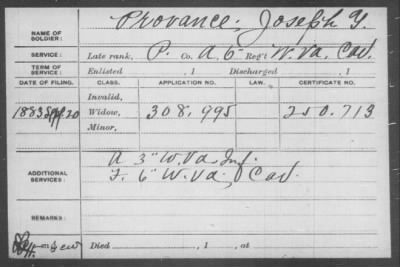 NAME OF SOLDIER: Provance, Joseph Y.
SERVICE: Late rank, P. Co. A, 6 Reg't W. Va. Cav.
TERM OF SERVICE: Enlisted , 1 Discharged , 1
DATE OF FILING. CLASS. APPLICATION NO. LAW. CERTIFICATE NO.
Invalid,
1883 20 Widow, 308,995 250,713
Minor,
ADDITIONAL SERVICES: A 3" W. Va. Inf.
F. 6" W. Va. Cav.
REMARKS:
Died , 1 , at